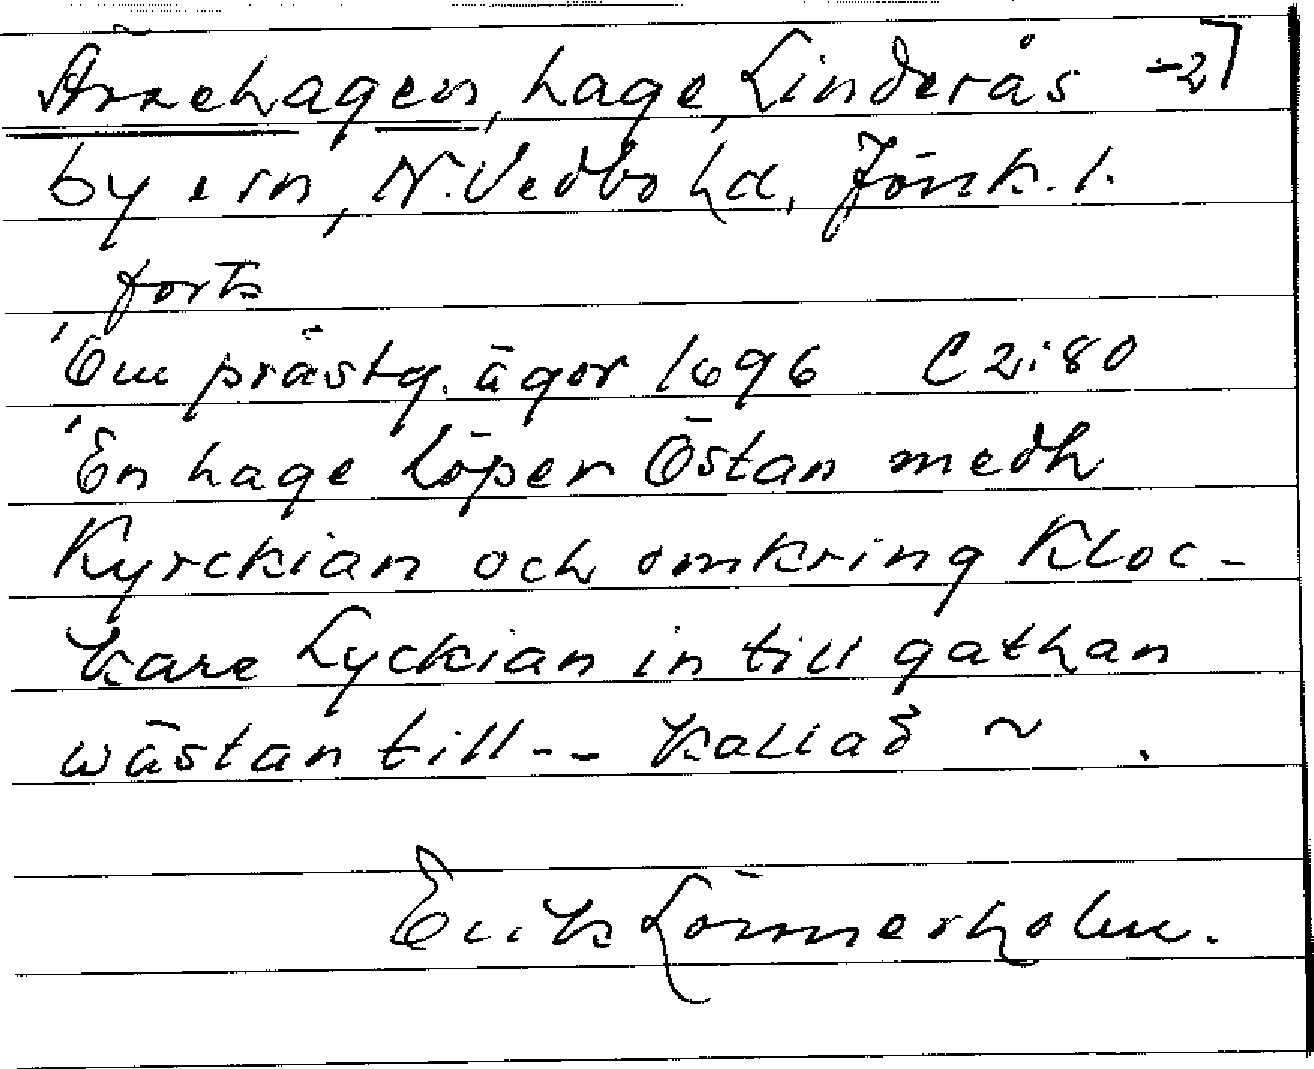 Ärnehagen, hage, Linderås -27
by o sn, N. Vedbo hd, Jönk. l.
forts
'Om prästg. ägor 1696 C 2:80
'En hage löper Östan medh
Kyrckian och omkring Kloc-
kare Lyckian in till gathan
wästan till -- kallad ~ .
Erik Lönnerholm.